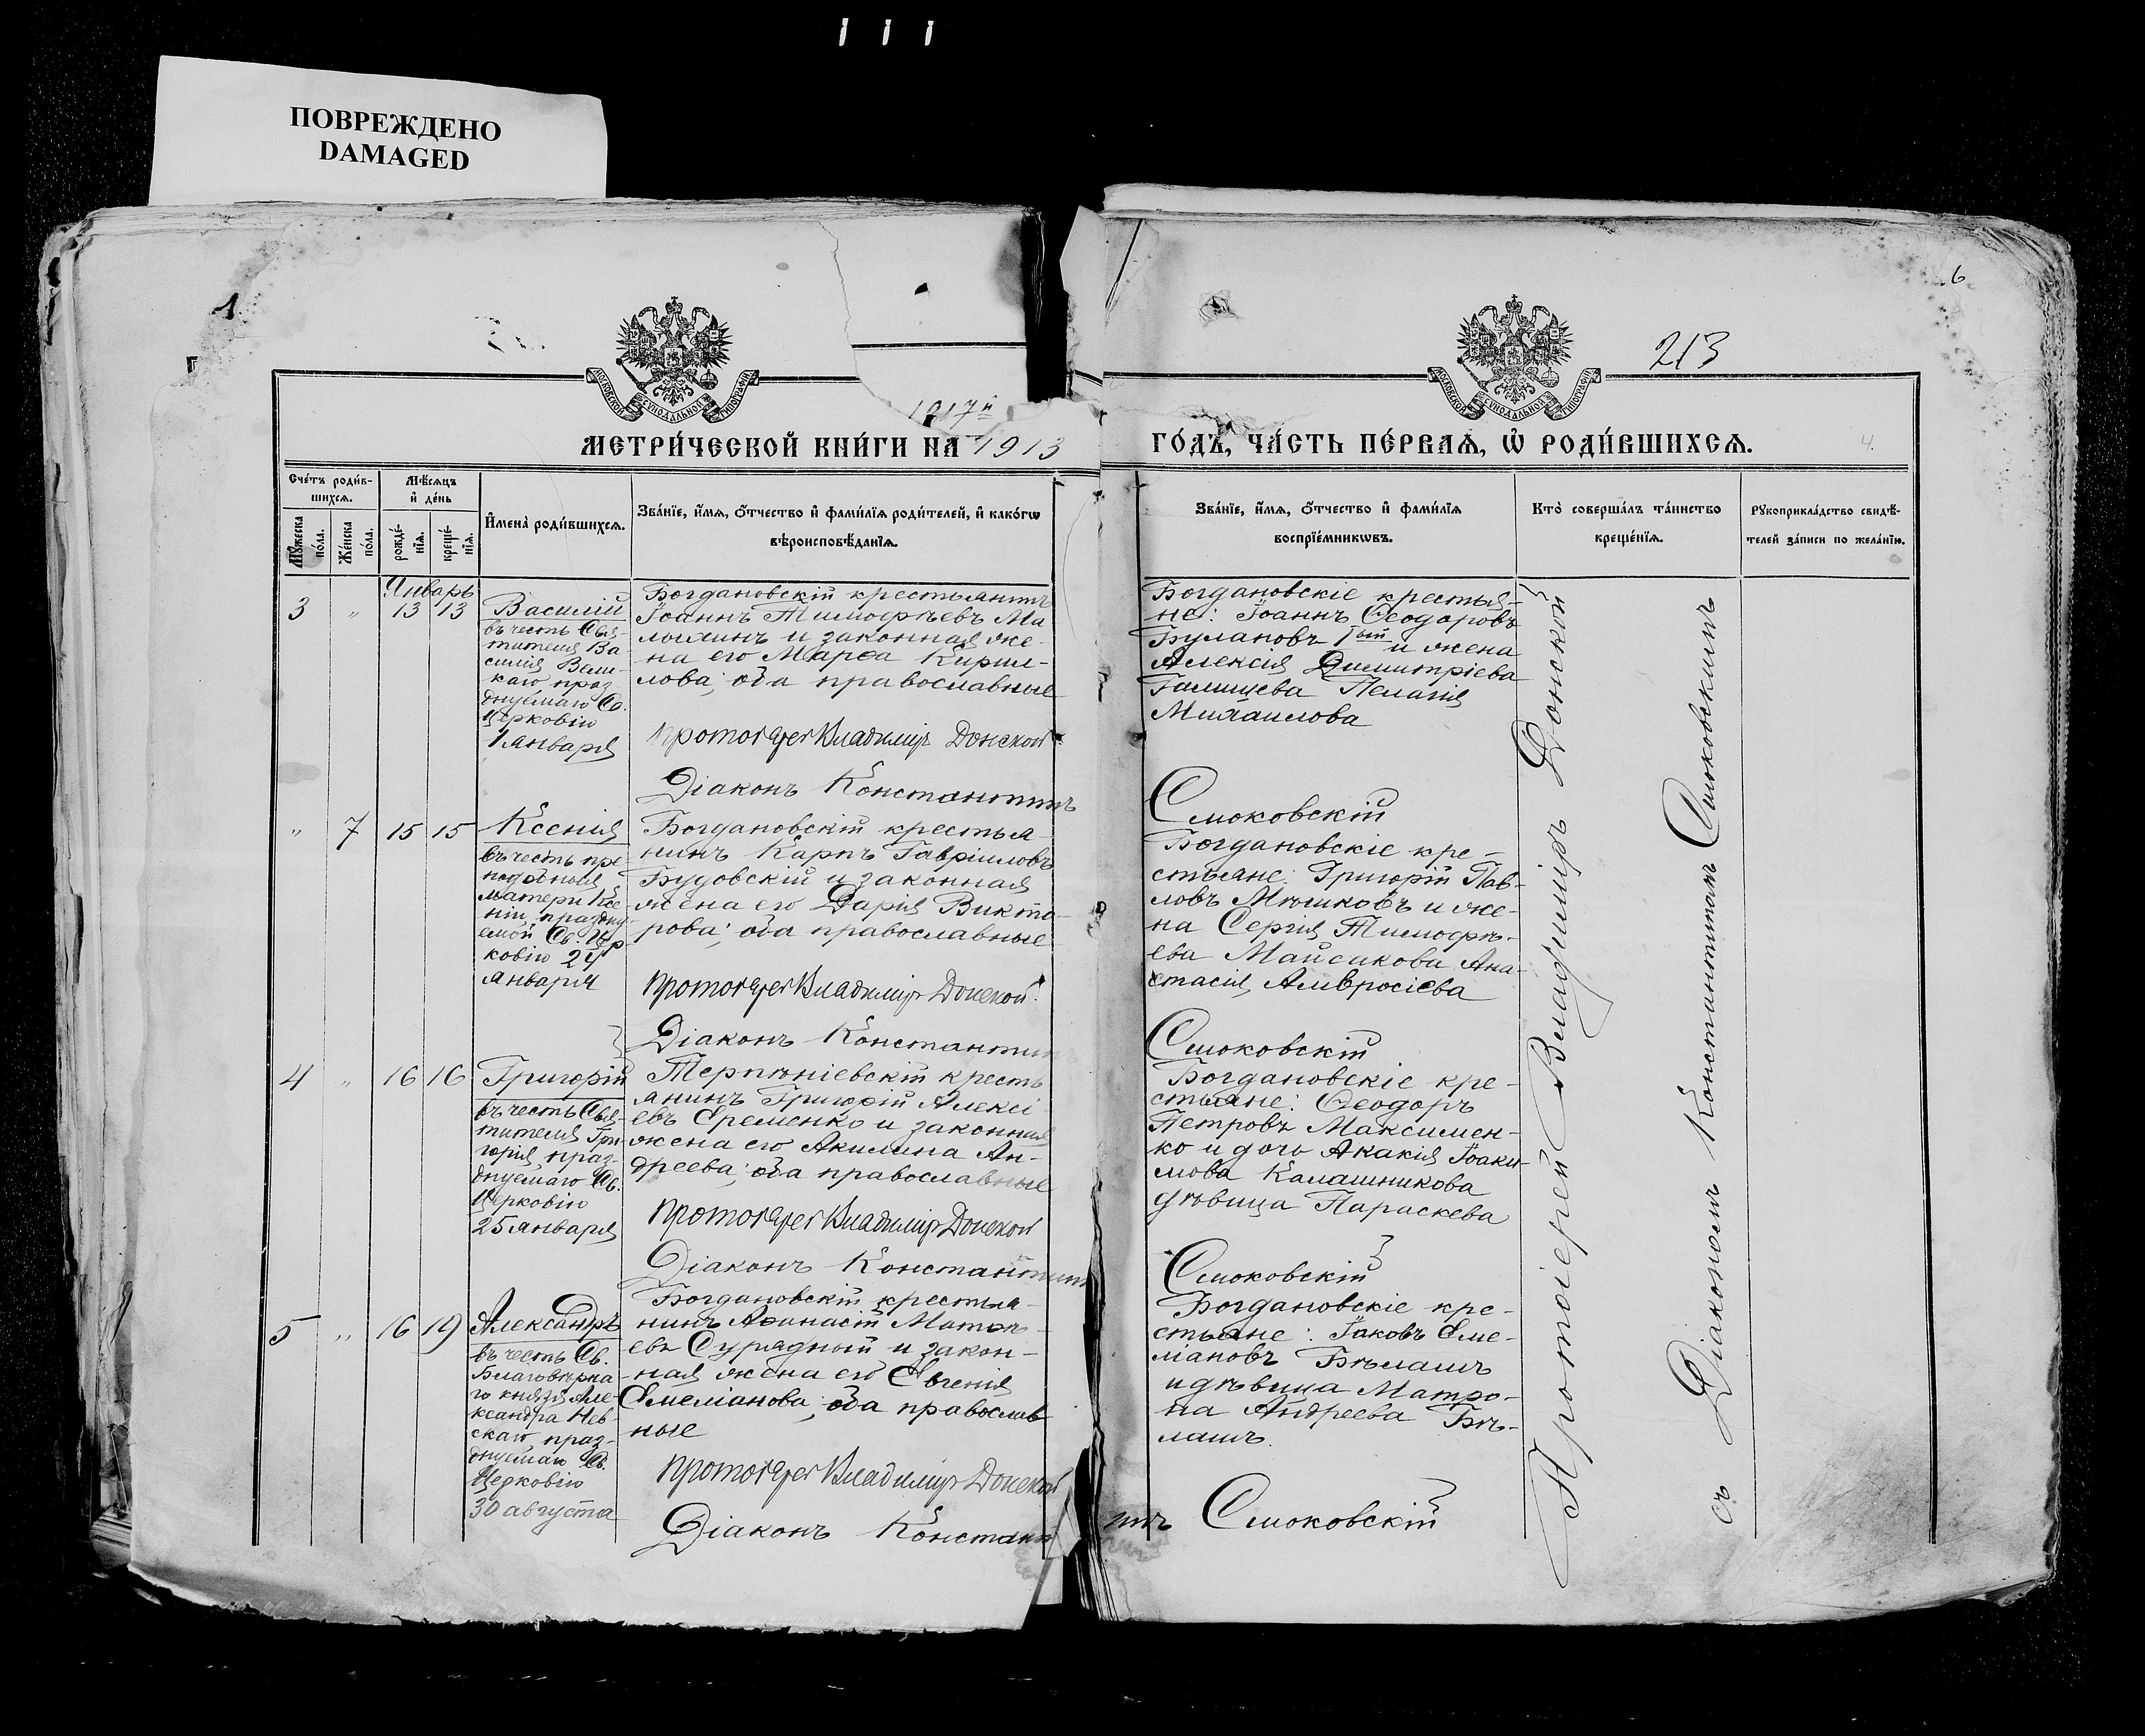 ПОВРЕЖДЕНО
DAMAGED
1
6
213
МОСКОВСКОЙ СѴНОДАЛЬНОЙ ТИПОГРАФІИ
МОСКОВСКОЙ СѴНОДАЛЬНОЙ ТИПОГРАФІИ
МЕТРИ́ЧЕСКОЙ КНИ́ГИ НА 1913
ГО́ДЪ, ЧА́СТЬ ПЕ́РВАѦ, Ѽ РОДИ́ВШИХСѦ.
4.
Сче́тъ роди́в-
шихсѧ.
Мѣ́сѧцъ
и҆ де́нь
Мꙋ́жеска
по́ла.
Же́нска
по́ла.
рожде́-
нїѧ.
креще́-
нїѧ.
И҆мена̀ роди́вшихсѧ.
Зва́нїе, и҆́мѧ, ѻ҆́тчество и҆ фами́лїѧ роди́телей, и҆ како́гѡ
вѣроисповѣ́данїѧ.
Зва́нїе, и҆́мѧ, ѻ҆́тчество и҆ фами́лїѧ
воспрїе́мникѡвъ.
Кто̀ соверша́лъ та́инство
креще́нїѧ.
Рꙋкоприкла́дство свидѣ́-
телей за́писи по жела́нїю.
Январь
3 " 13 13
Василій
въ честь Свя-
тителя Ва
силія Вели-
каго праз
днуемаго Св.
Церковію
1 января
Богдановскій крестьянинъ
Іоаннъ Тимофѣевъ Ма
лышинъ и законная же-
на его Марѳа Кирил-
лова; оба православные
Протоіерей Владиміръ Донской
Діаконъ Константинъ
Смоковскій
Богдановскіе крестья-
не: Іоаннъ Ѳеодоровъ
Булановъ 1ый и жена
Алексія Димитріева
Галицева Пелагія
Михаилова
" 7 15 15
Ксенія
въ честь пре-
подобныя
матери Ксе
ніи, праздну
емой Св. Цер
ковію 24
января
Богдановскій крестья-
нинъ Карпъ Гавріиловъ
Будовскій и законная
жена его Дарія Викто-
рова; оба православные
Протоіерей Владиміръ Донской
Діаконъ Константинъ
Смоковскій
Богдановскіе кре-
стьяне: Григорій Пав-
ловъ Мѣшковъ и же-
на Сергія Тимофѣ-
ева Майсикова Ана-
стасія Амвросіева
4 " 16 16
Григорій
въ честь Свя-
тителя Гри-
горія, праз-
днуемаго Св.
Церковію
25 января
Терпѣніевскій кресть
янинъ Григорій Алексі
евъ Еременко и законная
жена его Акилина Ан-
дреева; оба православные
Протоіерей Владиміръ Донской
Діаконъ Константинъ
Смоковскій
Богдановскіе кре-
стьяне: Ѳеодоръ
Петровъ Максимен-
ко и дочь Акакія Іоаки-
мова Калашникова
дѣвица Параскева
5 " 16 19
Александръ
въ честь Св.
Благовѣрна-
го князя Але-
ксандра Нев-
скаго праз-
днуемаго Св.
Церковію
30 августа
Богдановскій крестья-
нинъ Аѳанасій Матѳѣ-
евъ Сурядный и закон-
ная жена его Евгенія
Емеліанова; оба православ
ные
Протоіерей Владиміръ Донской
Діаконъ Константинъ
Смоковскій
Богдановскіе кре-
стьяне: Іаковъ Еме-
ліановъ Бѣлашъ
и дѣвица Матро-
на Андреева Бѣ-
лашъ.
Протоіерей Владиміръ Донской
съ Діакономъ Константиномъ Смоковскимъ